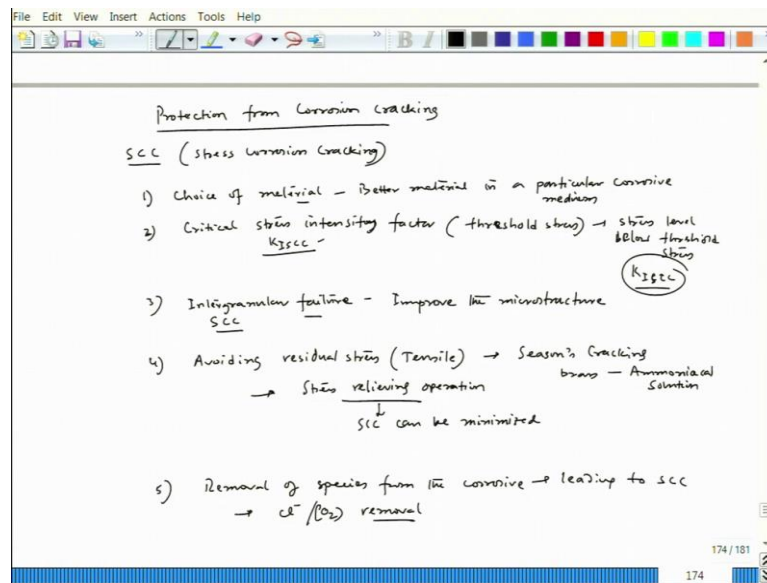 File Edit View Insert Actions Tools Help
B I
Protection from Corrosion Cracking
SCC (Stress Corrosion Cracking)
1) Choice of material – Better material in a particular corrosive
medium
2) Critical stress intensity factor (threshold stress) → stress level
KISCC – below threshold
stress
KISCC
3) Intergranular failure – Improve the microstructure
SCC
4) Avoiding residual stress (Tensile) → Season's Cracking
brass – Ammoniacal
Solution
→ Stress relieving operation
↓
SCC can be minimized
5) Removal of species from the corrosive → leading to SCC
→ Cl⁻/[O2] removal
174 / 181
174